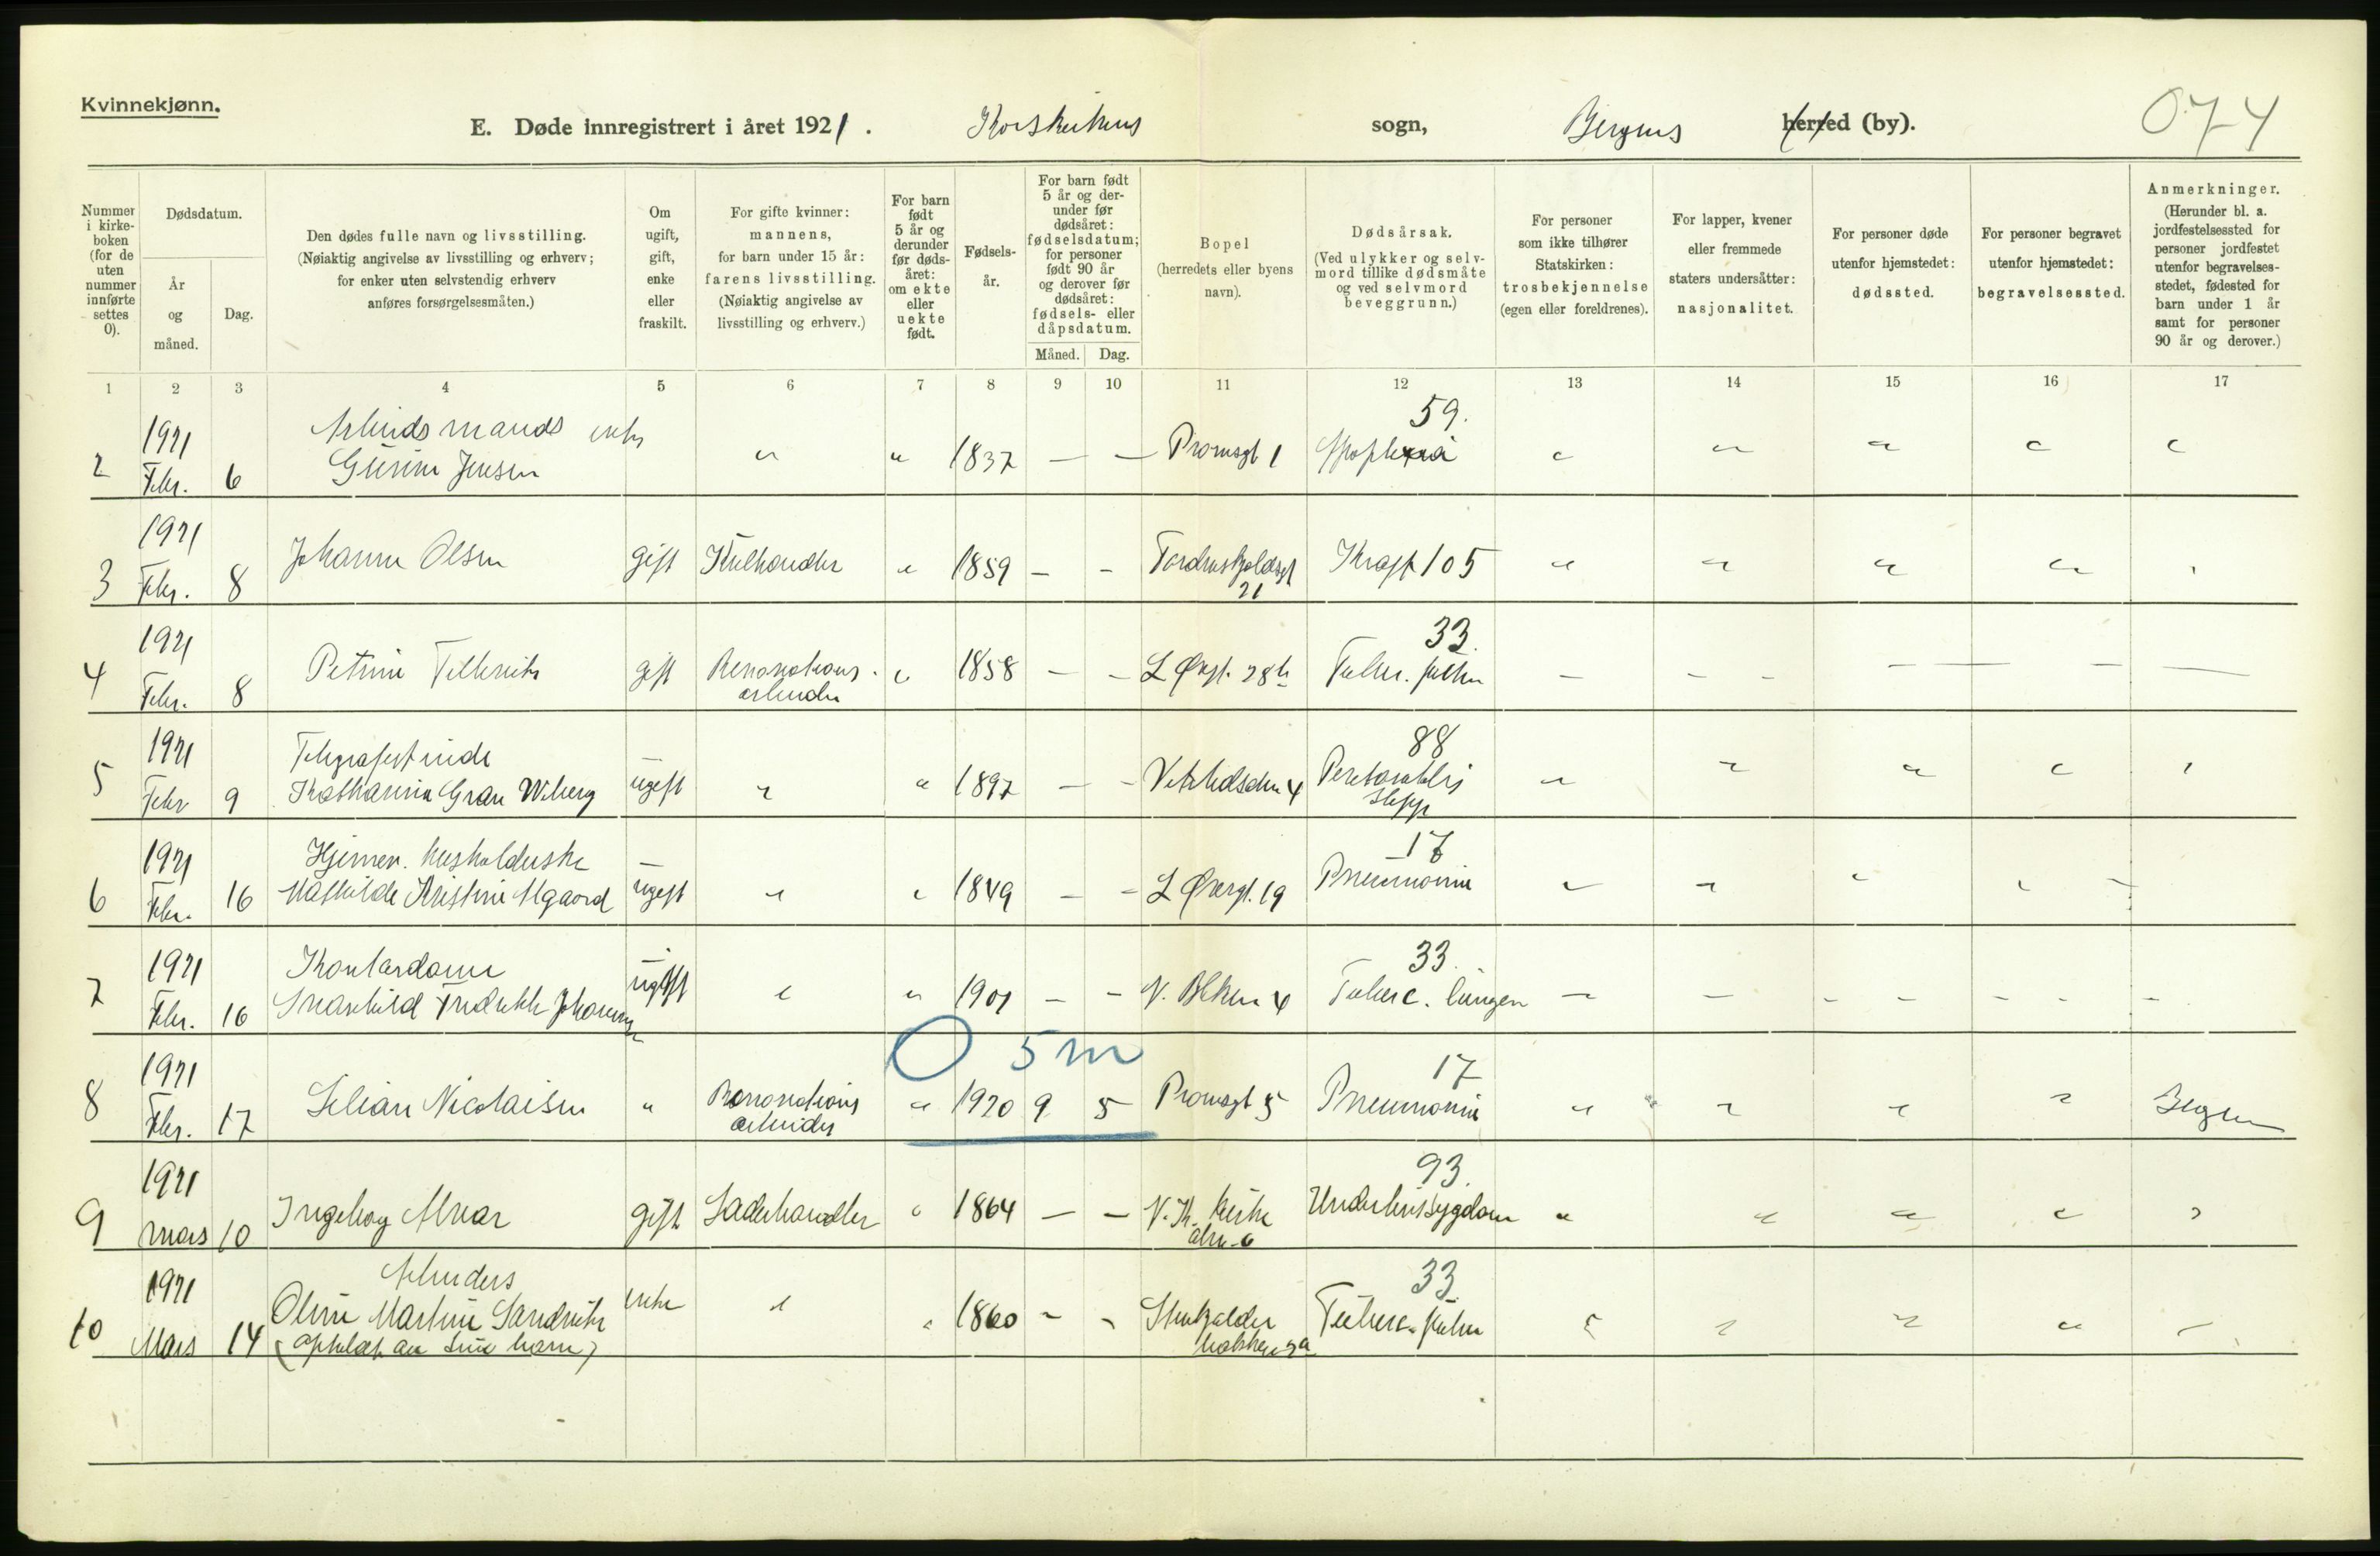 Kvinnekjønn.
E. Døde innregistrert i året 1921. Korskirkens sogn, Bergens herred (by). 074
Nummer i kirkeboken (for de uten nummer innførte settes 0).
Dødsdatum.
År og måned.
Dag.
Den dødes fulle navn og livsstilling.
(Nøiaktig angivelse av livsstilling og erhverv;
for enker uten selvstendig erhverv
anføres forsørgelsesmåten.)
Om ugift, gift, enke eller fraskilt.
For gifte kvinner:
mannens,
for barn under 15 år:
farens livsstilling.
(Nøiaktig angivelse av
livsstilling og erhverv.)
For barn født 5 år og derunder før dødsåret: om ekte eller uekte født.
Fødselsår.
For barn født 5 år og derunder før dødsåret: fødselsdatum; for personer født 90 år og derover før dødsåret: fødsels- eller dåpsdatum.
Måned. Dag.
Bopel
(herredets eller byens
navn).
Dødsårsak.
(Ved ulykker og selvmord tillike dødsmåte
og ved selvmord
beveggrunn.)
For personer
som ikke tilhører
Statskirken:
trosbekjennelse
(egen eller foreldrenes).
For lapper, kvener
eller fremmede
staters undersåtter:
nasjonalitet.
For personer døde
utenfor hjemstedet:
dødssted.
For personer begravet
utenfor hjemstedet:
begravelsessted.
Anmerkninger.
(Herunder bl. a.
jordfestelsessted for
personer jordfestet
utenfor begravelses-
stedet, fødested for
barn under 1 år
samt for personer
90 år og derover.)
1 2 3 4 5 6 7 8 9 10 11 12 13 14 15 16 17
2 1921 Febr. 6 Arbeidsmands enke Jensen " " 1837 — — Promsgt 1 59. Apoplexia
3 1921 Febr. 8 Johanne Olsen gift Kulhandler " 1859 — — Tordenskjoldsgt 21 Kræft 105
4 1921 Febr. 8 Petrine gift Renovations arbeider " 1858 — — L Øvregt. 28b 33. Tuberc. pulm
5 1921 Febr 9 Telegrafistinde Katharina Gran Wiberg ugift " " 1897 — — 4 88
6 1921 Febr. 16 Hjemmev. husholderske Mathilde Kristine Algaard ugift " " 1849 — — L Øvregt. 19 17 Pneumonie
7 1921 Febr. 16 Kontordame Fredrikke Johannesen ugift " " 1901 — — 33. Tuberc. lungen
O 5 m
8 1921 Febr. 17 Lilian Nicolaisen " Renovations arbeider " 1920 9 5 Promsgt 5 17 Pneumonie Bergen
9 1921 Mars 10 Ingeborg Alvær gift Læderhandler " 1864 — — 93. Underlivssygdom
10 1921 Mars 14 Arbeiders Oline Martine Sandvik (ophold av sine barn) enke " " 1860 — — 33. Tuberc. pulm